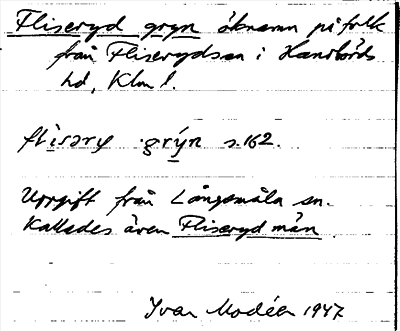 Fliseryd gryn öknamn på folk
från Fliserydsen i Handbörds
hd, Klm l.
flisərẏ grýn s. 162.
Uppgift från Långemåla sn.
Kallades även Fliseryd män
Yvar Modéer 1947